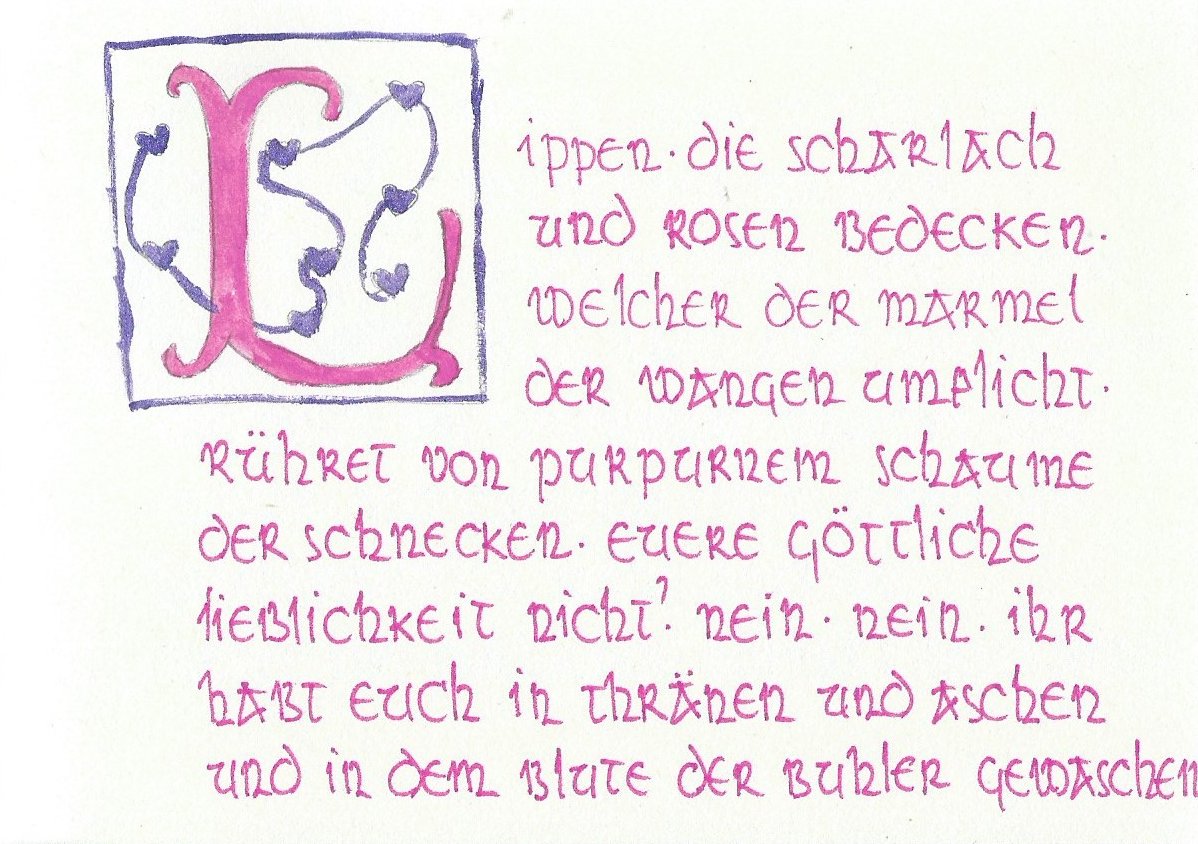 Lippen. die scharlach
und rosen bedecken.
welcher der marmel
der wangen umflicht.
rühret von purpurnem schaume
der schnecken. euere göttliche
lieblichkeit nicht? nein. nein. ihr
habt euch in thränen und aschen
und in dem blute der buhler gewaschen